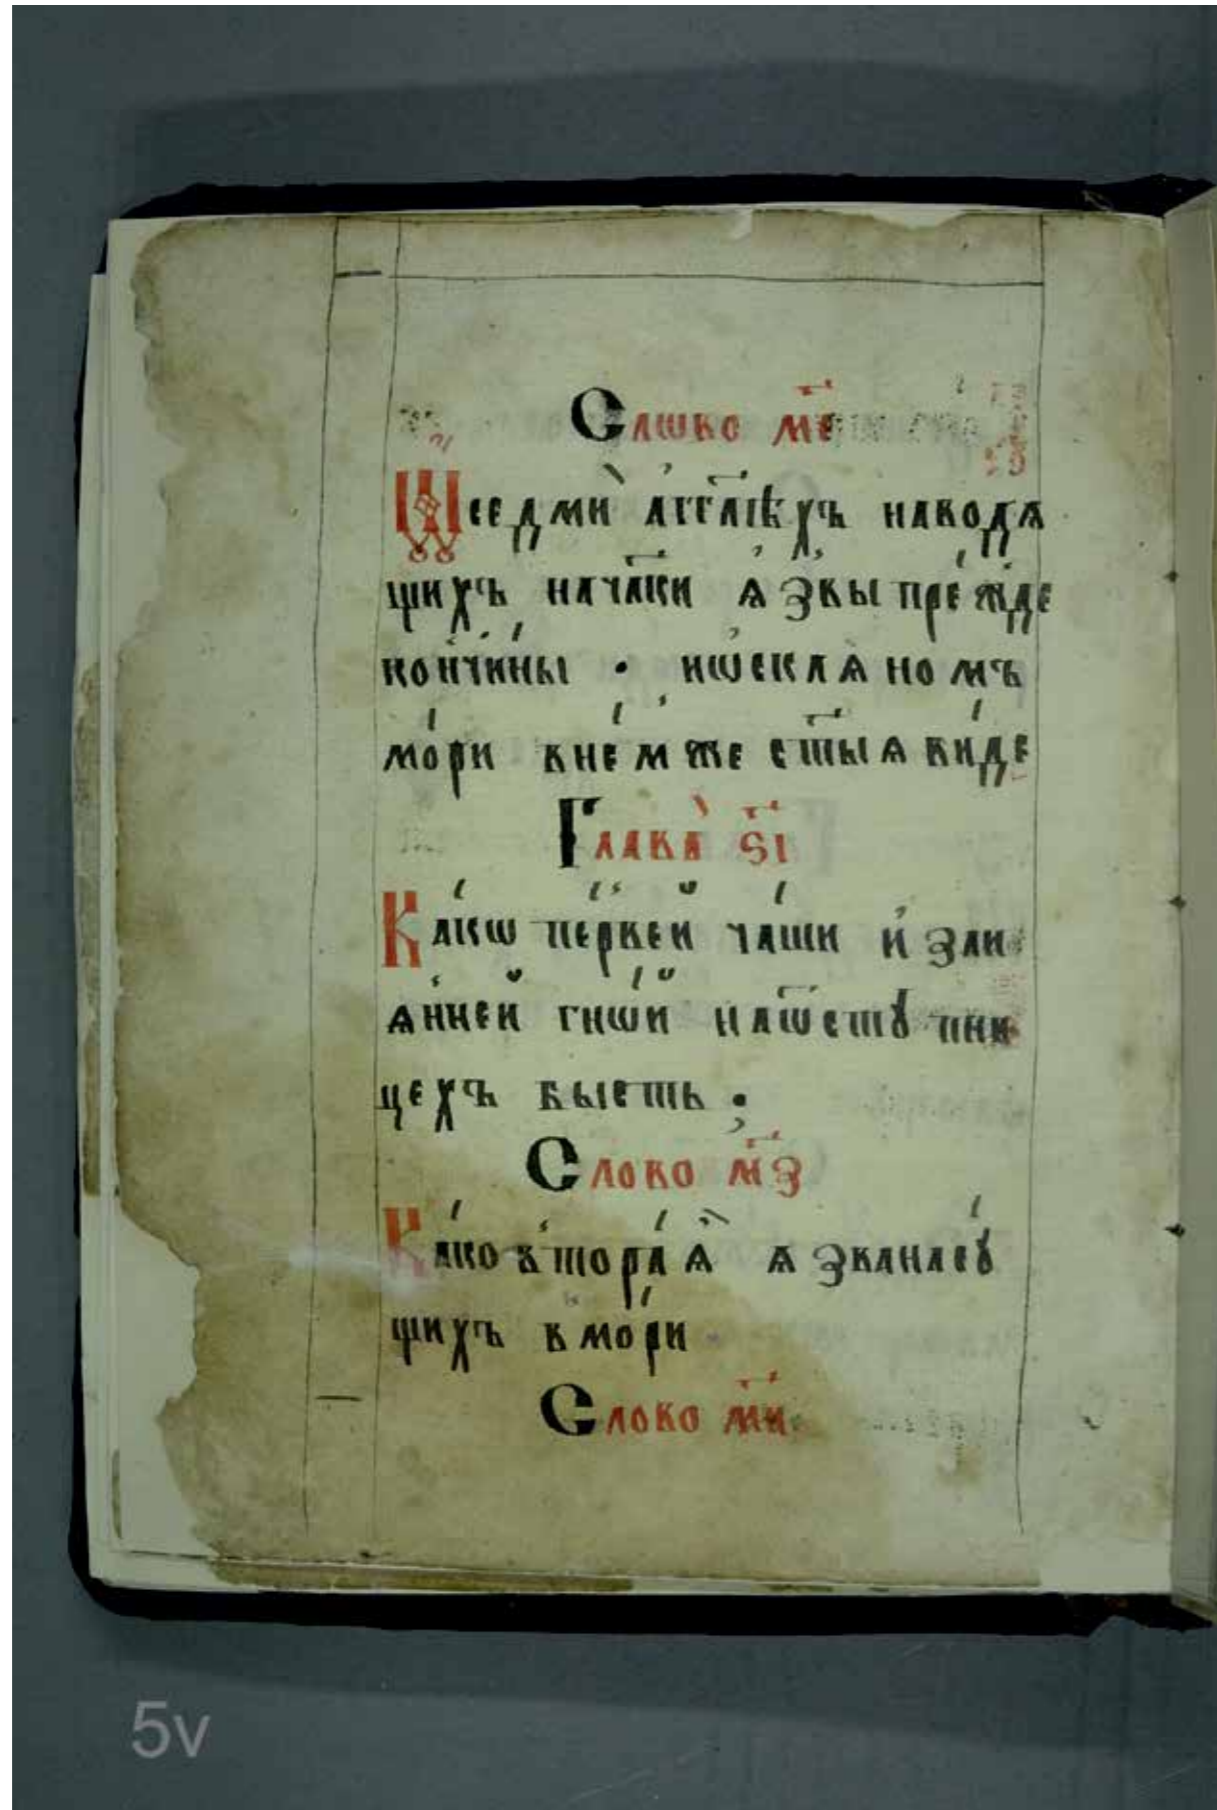 Слѡво м҃е
Ѿседмѝ а҆гг҃лѣхъ наводѧ
щихъ начл҃ки ꙗ҆́звы пре́жде
кон̾чи́ны · иѡ҆секлѧномъ
мо́ри вне́мже ст҃ыѧ ви́де
Глава̀ ѕ҃і
Ка́кѡ пе́рвей ча́ши и҆злиѧ́
ѧ҆́ннеи гнѡ́й наѿстꙋ пни
цехъ бысть ·
Слово м҃з
Ка́ко в̾тора́ѧ ѧзванасꙋ́
щихъ в̾мо́ри
Слово м҃и
5v